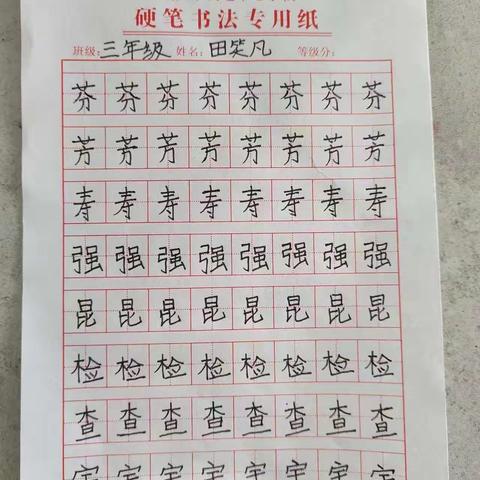 硬笔书法专用纸
班级:三年级 姓名:田笑凡 等级分:
芬芬芬芬芬芬芬芬
芳芳芳芳芳芳芳芳
寿寿寿寿寿寿寿寿
强强强强强强强强
昆昆昆昆昆昆昆昆
检检检检检检检检
查查查查查查查查